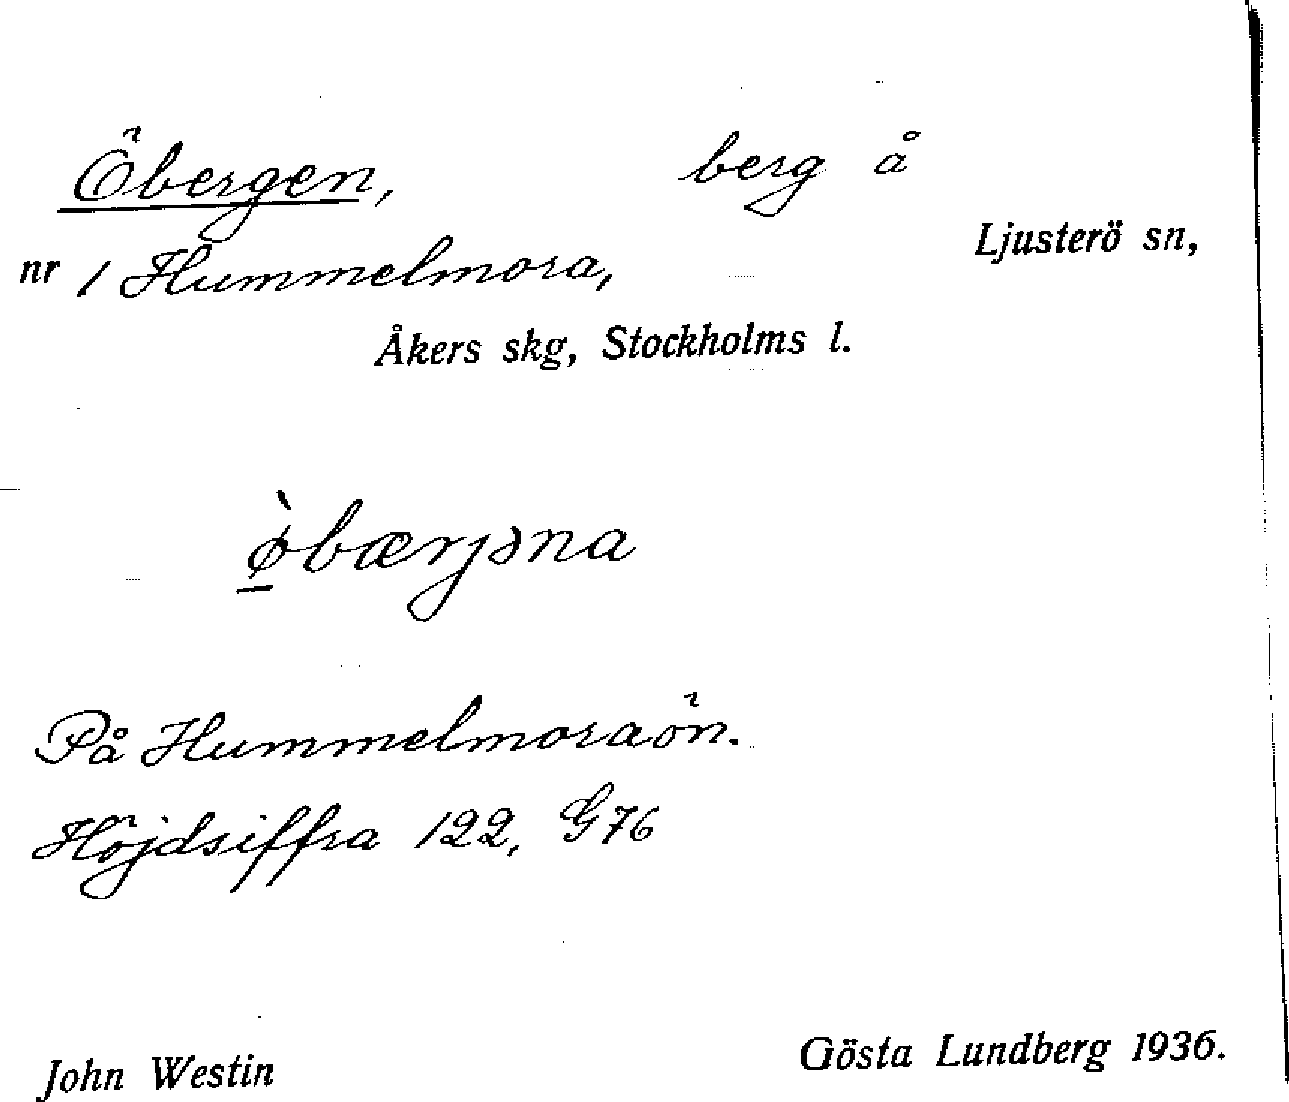 Öbergen, berg å
Ljusterö sn,
nr 1 Hummelmora,
Åkers skg, Stockholms l.
ø̀bærjəna
På Hummelmoraön.
Höjdsiffra 122, G76
John Westin
Gösta Lundberg 1936.